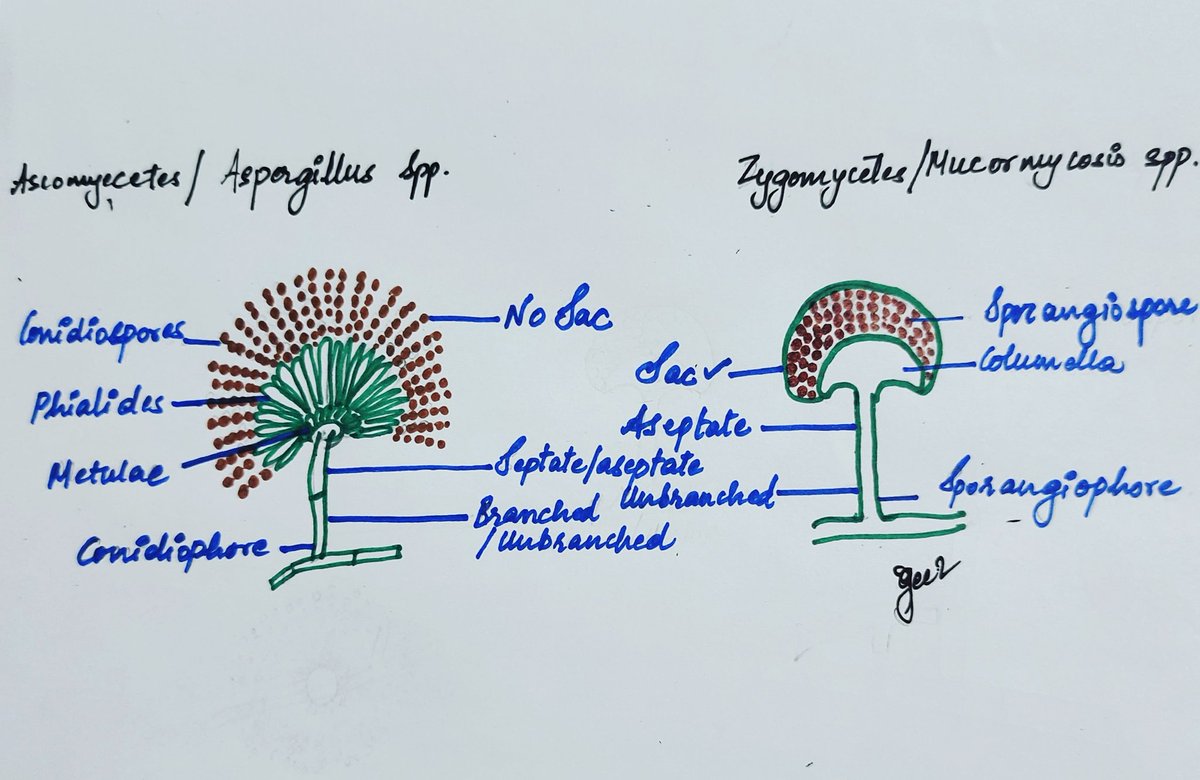 Ascomycetes/ Aspergillus Spp.
Zygomycetes/Mucormycosis spp.
Conidiospores
No Sac
Phialides
Metulae
Septate/aseptate
Branched
/Unbranched
Conidiophore
Sporangiospore
Columella
Sac ✓
Aseptate
Unbranched
Sporangiophore